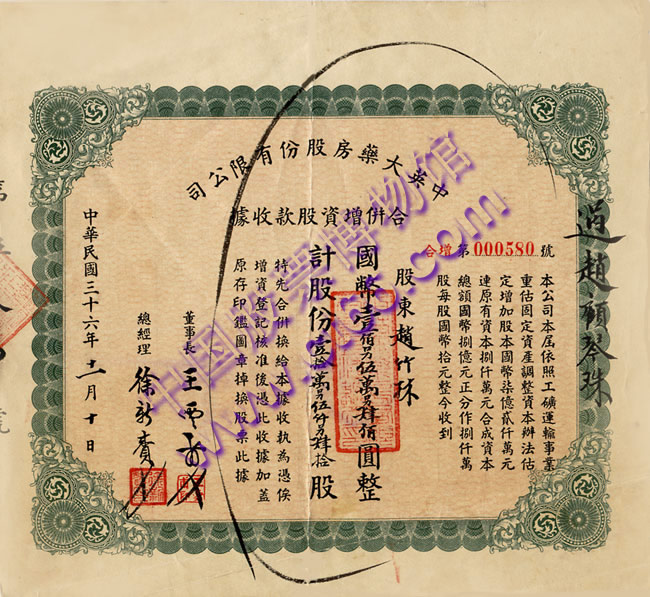 中英大藥房股份有限公司
合併增資股款收據
合增第000580號
本公司本屆依照工礦運輸事業
重估固定資產調整資本辦法估
定增加股本國幣柒億貳仟萬元
連原有資本捌仟萬元合成資本
總額國幣捌億元正分作捌仟萬
股每股國幣拾元整今收到
股東趙竹林
國幣壹佰另伍萬另肆佰圓整
計股份壹拾萬另伍仟另肆拾股
持先合併換給本據收執為憑俟
增資登記核准後憑此收據加蓋
原存印鑑圖章掉換股票此據
董事長
總經理
徐新賡
中華民國三十六年十一月十日
中国股票博物馆